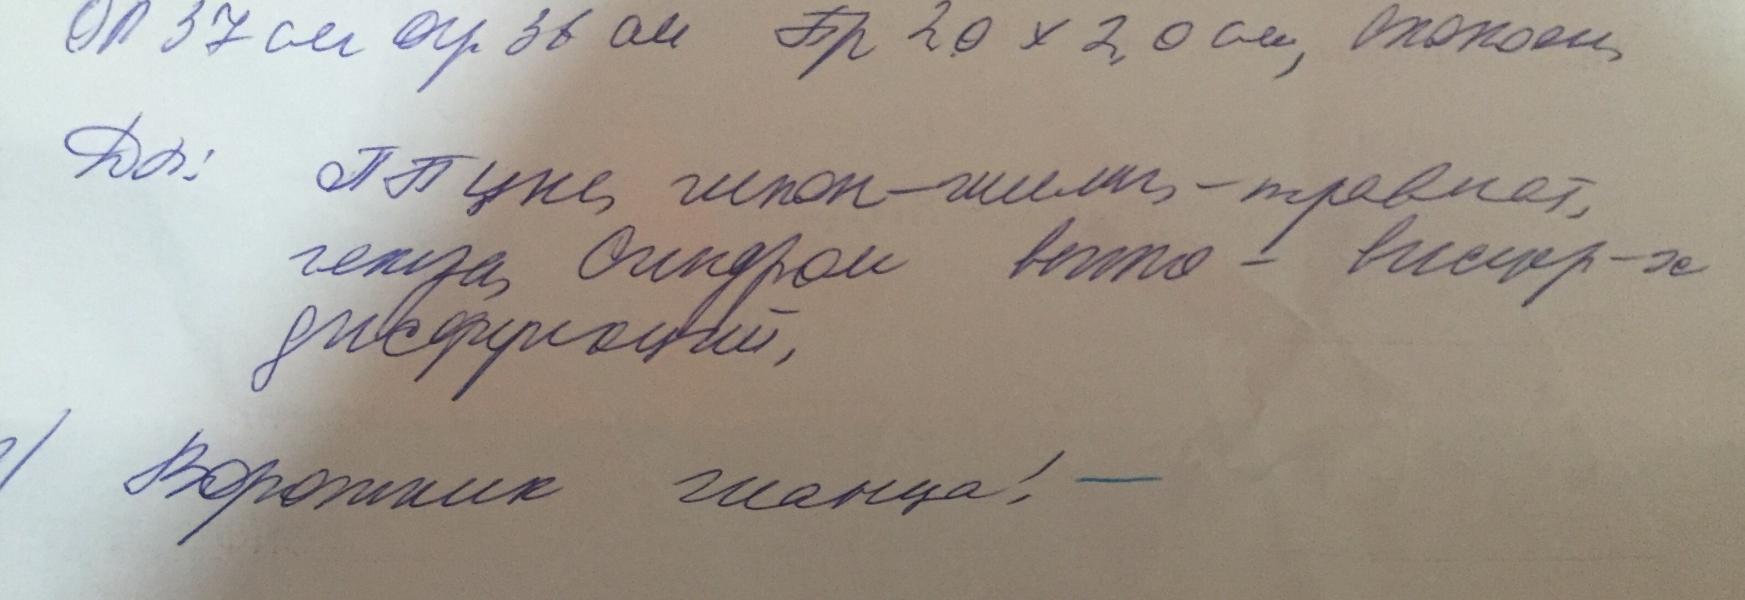 ОГ 37 см Огр 36 см Бр 2.0 х 2,0 см, спокоен,
Ds: ПП ЦНС, гипок-ишем, -травмат,
генеза, Синдром вегето - висцер-х
дисфункций,
Воротник шанца! —